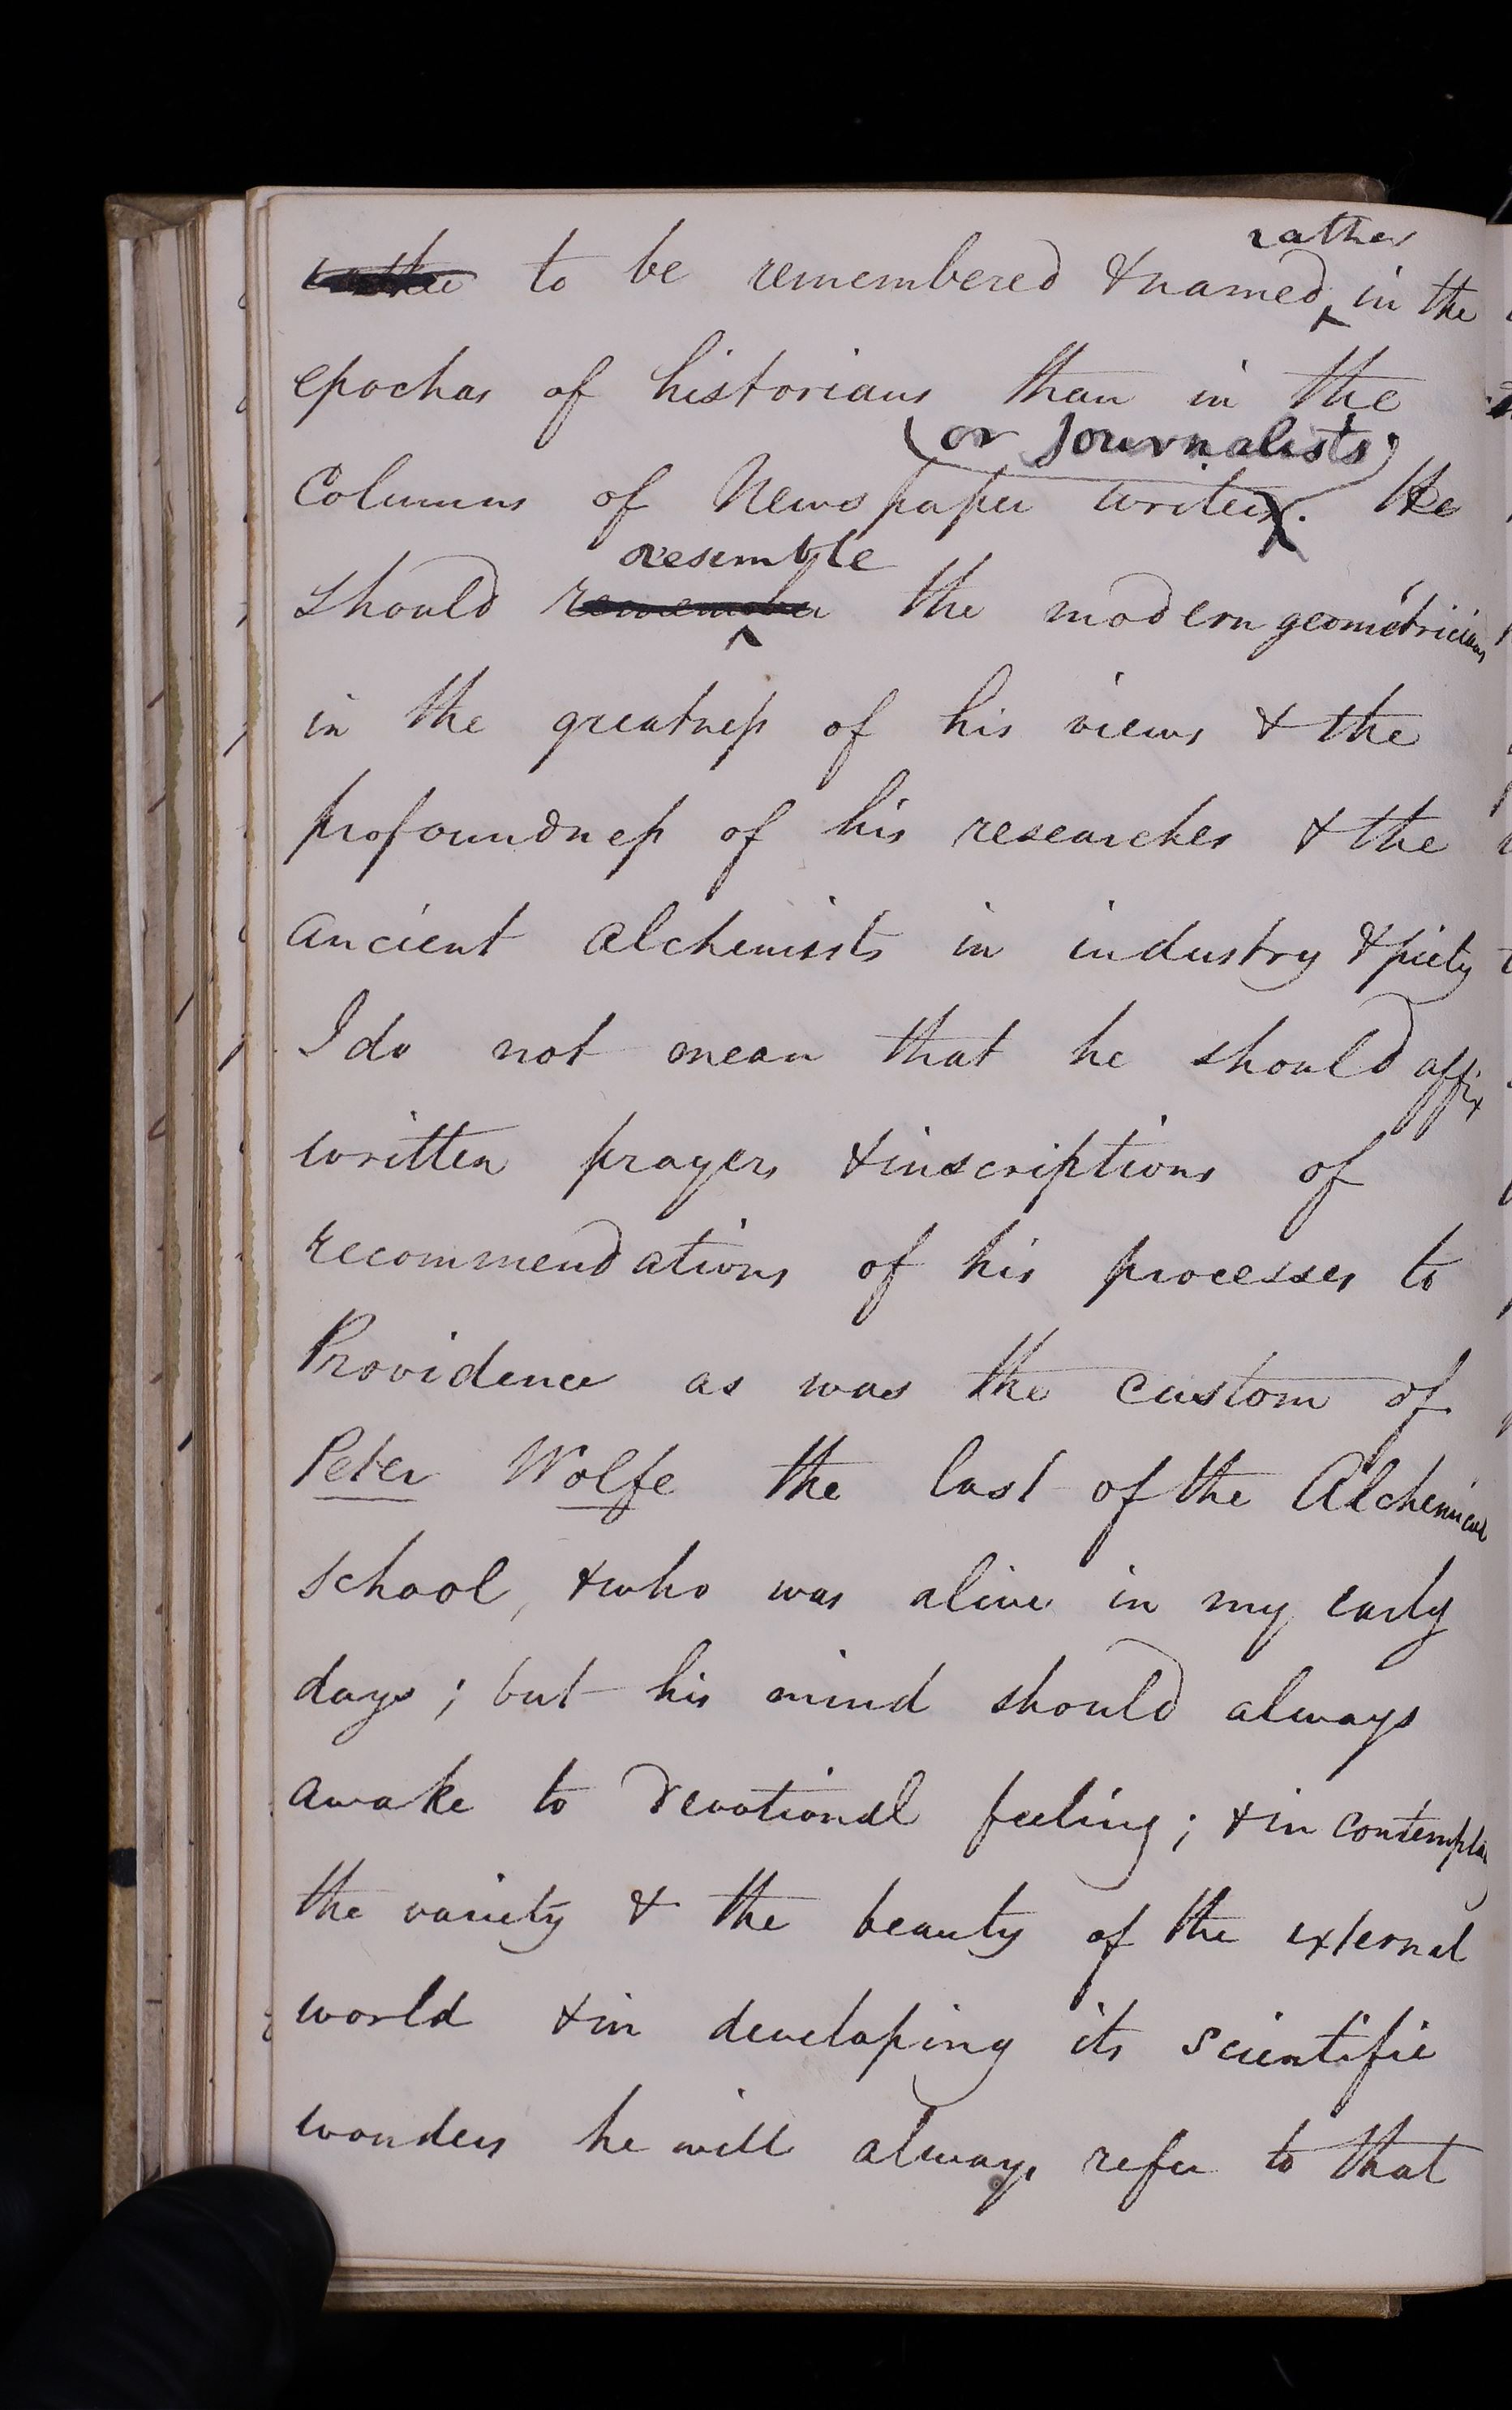 rather
rather to be remembered & named in the
epochas of historians than in the
(or Journalists)
Columns of News paper writers. He
resemble
should remember the modern geometricians
in the greatness of his views & the
profoundness of his researches & the
ancient alchemists in industry & piety
I do not mean that he should affix
written prayers & inscriptions of
recommendations of his processes to
Providence as was the custom of
Peter Wolfe the last of the Alchemical
school, & who was alive in my early
days; but his mind should always
awake to devotional feeling; & in contemplating
the variety & the beauty of the external
world & in developing its scientific
wonders he will always refer to that